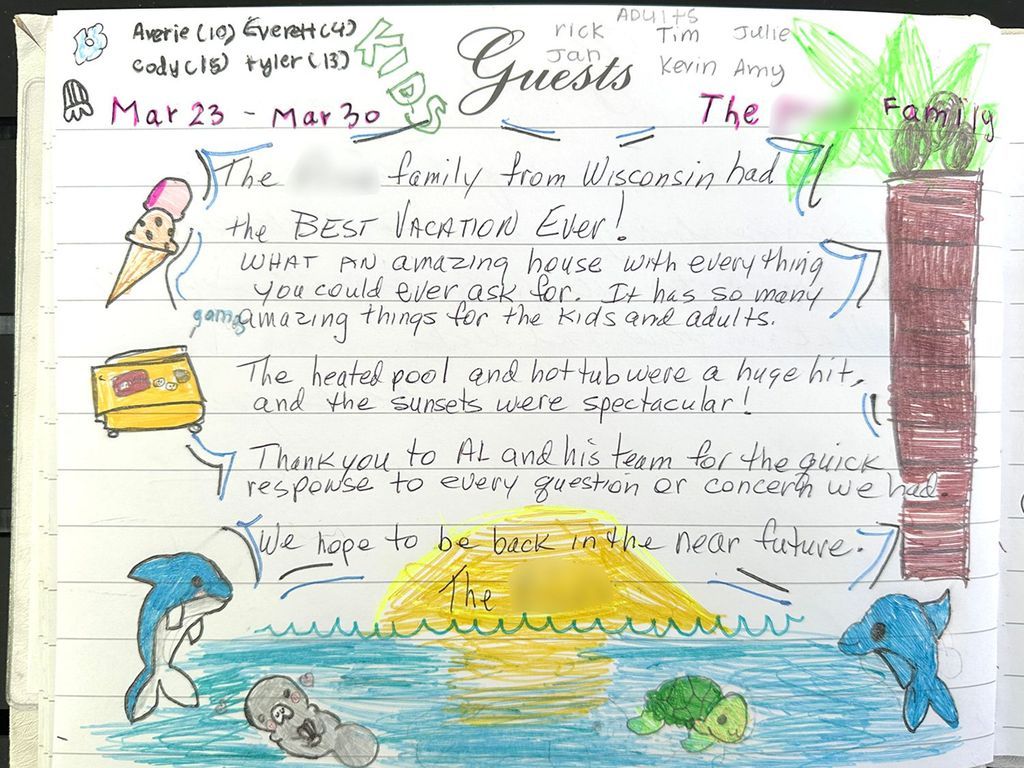 Averie (10) Everett (4)
Cody (15) Tyler (13)
KIDS
ADULTS
rick Tim Julie
Jan Kevin Amy
Guests
Mar 23 - Mar 30
The Family
The family from Wisconsin had
the BEST VACATION Ever!
WHAT AN amazing house with everything
you could ever ask for. It has so many
games amazing things for the kids and adults.
The heated pool and hot tub were a huge hit,
and the sunsets were spectacular!
Thank you to AL and his team for the quick
response to every question or concern we had.
We hope to be back in the near future.
The